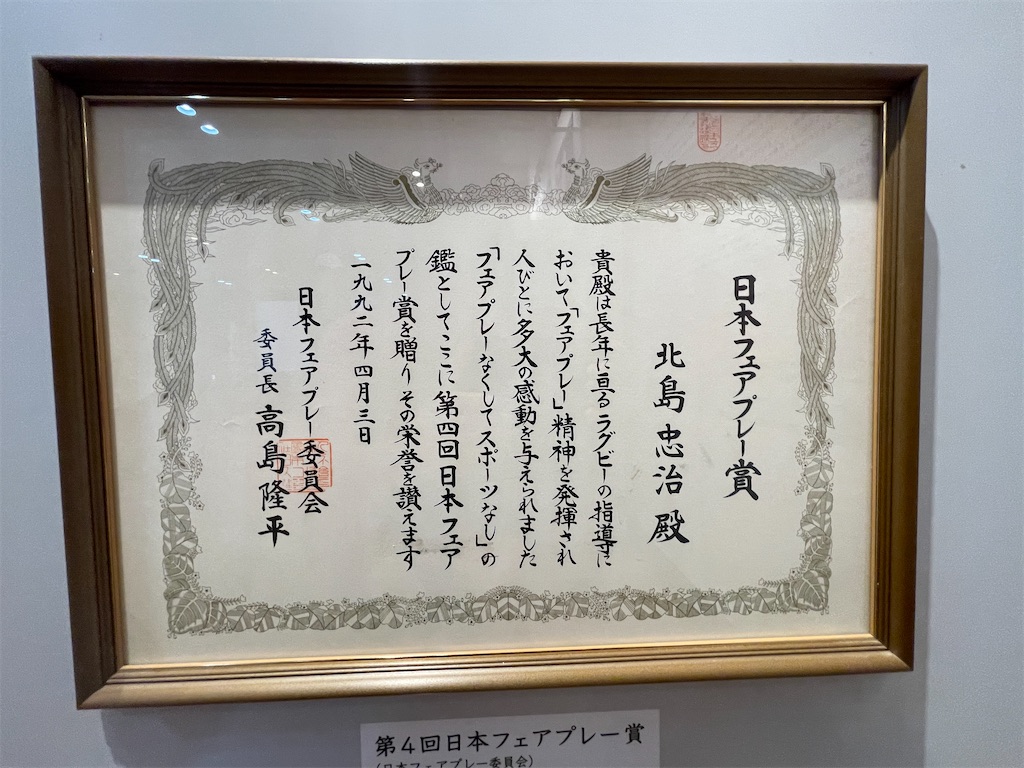 日本フェアプレー賞
北島忠治殿
貴殿は長年に亘るラグビーの指導に
おいて「フェアプレー」精神を発揮され
人びとに多大の感動を与えられました
「フェアプレーなくしてスポーツなし」の
鑑としてここに第四回日本フェア
プレー賞を贈りその栄誉を讃えます
一九九二年四月三日
日本フェアプレー委員会
委員長 高島隆平
第4回日本フェアプレー賞
(日本フェアプレー委員会)